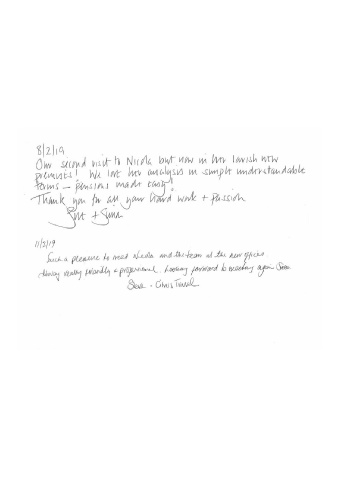 8/2/19
Our second visit to Nicola but now in her lavish new
premises! We love her analysis in simple understandable
terms – pensions made easy!
Thank you for all your hard work + passion
11/2/19
Such a pleasure to meet and the team at the new office
really friendly + professional. Looking forward to meeting again soon
Steve + Chris